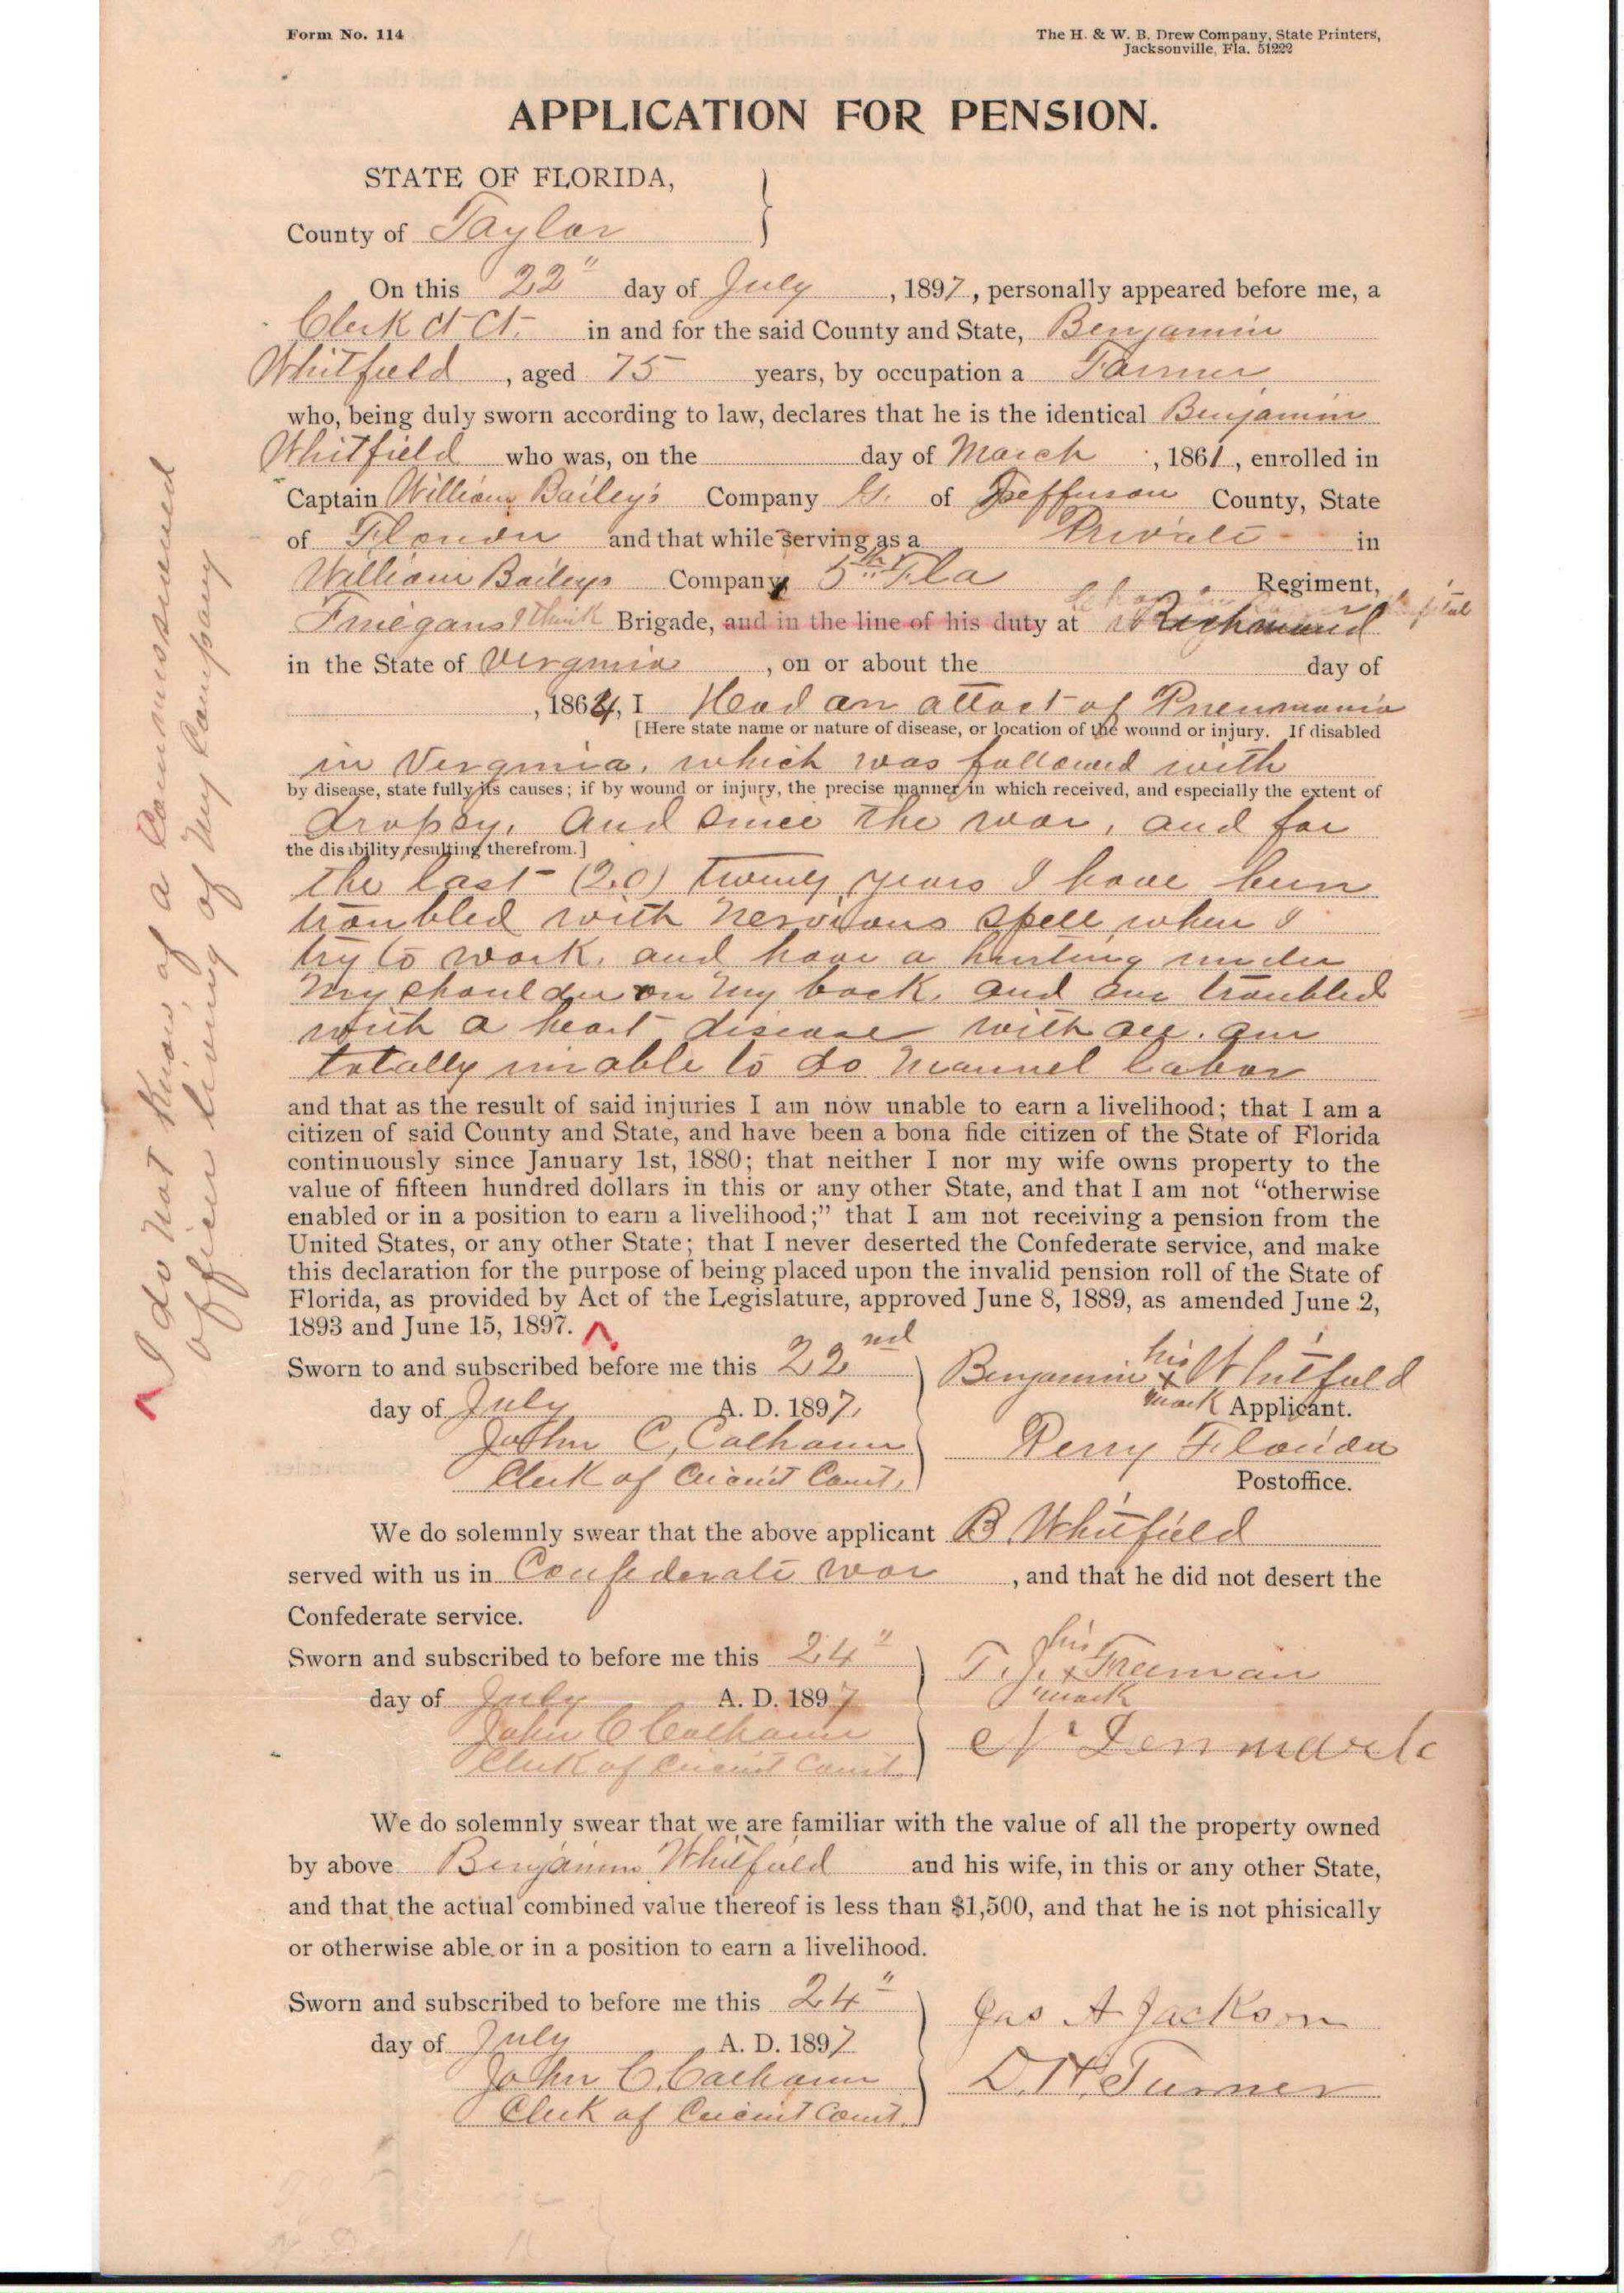 Form No. 114
The H. & W. B. Drew Company, State Printers,
Jacksonville, Fla. 51222
APPLICATION FOR PENSION.
STATE OF FLORIDA,
County of Taylor
On this 22" day of July, 1897, personally appeared before me, a
Clerk Ct Ct. in and for the said County and State, Benjamin
Whitfield, aged 75 years, by occupation a Farmer
who, being duly sworn according to law, declares that he is the identical Benjamin
Whitfield who was, on the day of March, 1861, enrolled in
Captain William Bailey's Company G. of Jefferson County, State
of Florida and that while serving as a Private in
William Baileys Company 5th Fla Regiment,
Finegans I think Brigade, and in the line of his duty at Richmond
in the State of Verginia, on or about the day of
, 1864, I Had an attact of Pneumonia
[Here state name or nature of disease, or location of the wound or injury. If disabled
in Verginia, which was followed with
by disease, state fully its causes; if by wound or injury, the precise manner in which received, and especially the extent of
dropsy. And since the war, and for
the disibility resulting therefrom.]
the last (20) twenty years I have been
troubled with nervious spell when I
try to work. and have a hurting under
my shoulder on my back. and am troubled
with a heart disease with all. am
totally unable to do mannel labor
and that as the result of said injuries I am now unable to earn a livelihood; that I am a
citizen of said County and State, and have been a bona fide citizen of the State of Florida
continuously since January 1st, 1880; that neither I nor my wife owns property to the
value of fifteen hundred dollars in this or any other State, and that I am not "otherwise
enabled or in a position to earn a livelihood;" that I am not receiving a pension from the
United States, or any other State; that I never deserted the Confederate service, and make
this declaration for the purpose of being placed upon the invalid pension roll of the State of
Florida, as provided by Act of the Legislature, approved June 8, 1889, as amended June 2,
1893 and June 15, 1897. ^
^ I do not know of a Commissioned
officer living of my Company
Sworn to and subscribed before me this 22nd
day of July A. D. 1897.
John C. Calhoun
Clerk of Circuit Court,
Benjamin his x mark Whitfield
Applicant.
Perry Florida
Postoffice.
We do solemnly swear that the above applicant B. Whitfield
served with us in Confederate war, and that he did not desert the
Confederate service.
Sworn and subscribed to before me this 24"
day of July A. D. 1897
John C Calhoun
Clerk of Circuit Court
T. J. his x mark Freeman
N Denmark
We do solemnly swear that we are familiar with the value of all the property owned
by above Benjamin Whitfield and his wife, in this or any other State,
and that the actual combined value thereof is less than $1,500, and that he is not phisically
or otherwise able or in a position to earn a livelihood.
Sworn and subscribed to before me this 24"
day of July A. D. 1897
John C. Calhoun
Clerk of Circuit Court.
Jas A Jackson
D. H. Turner